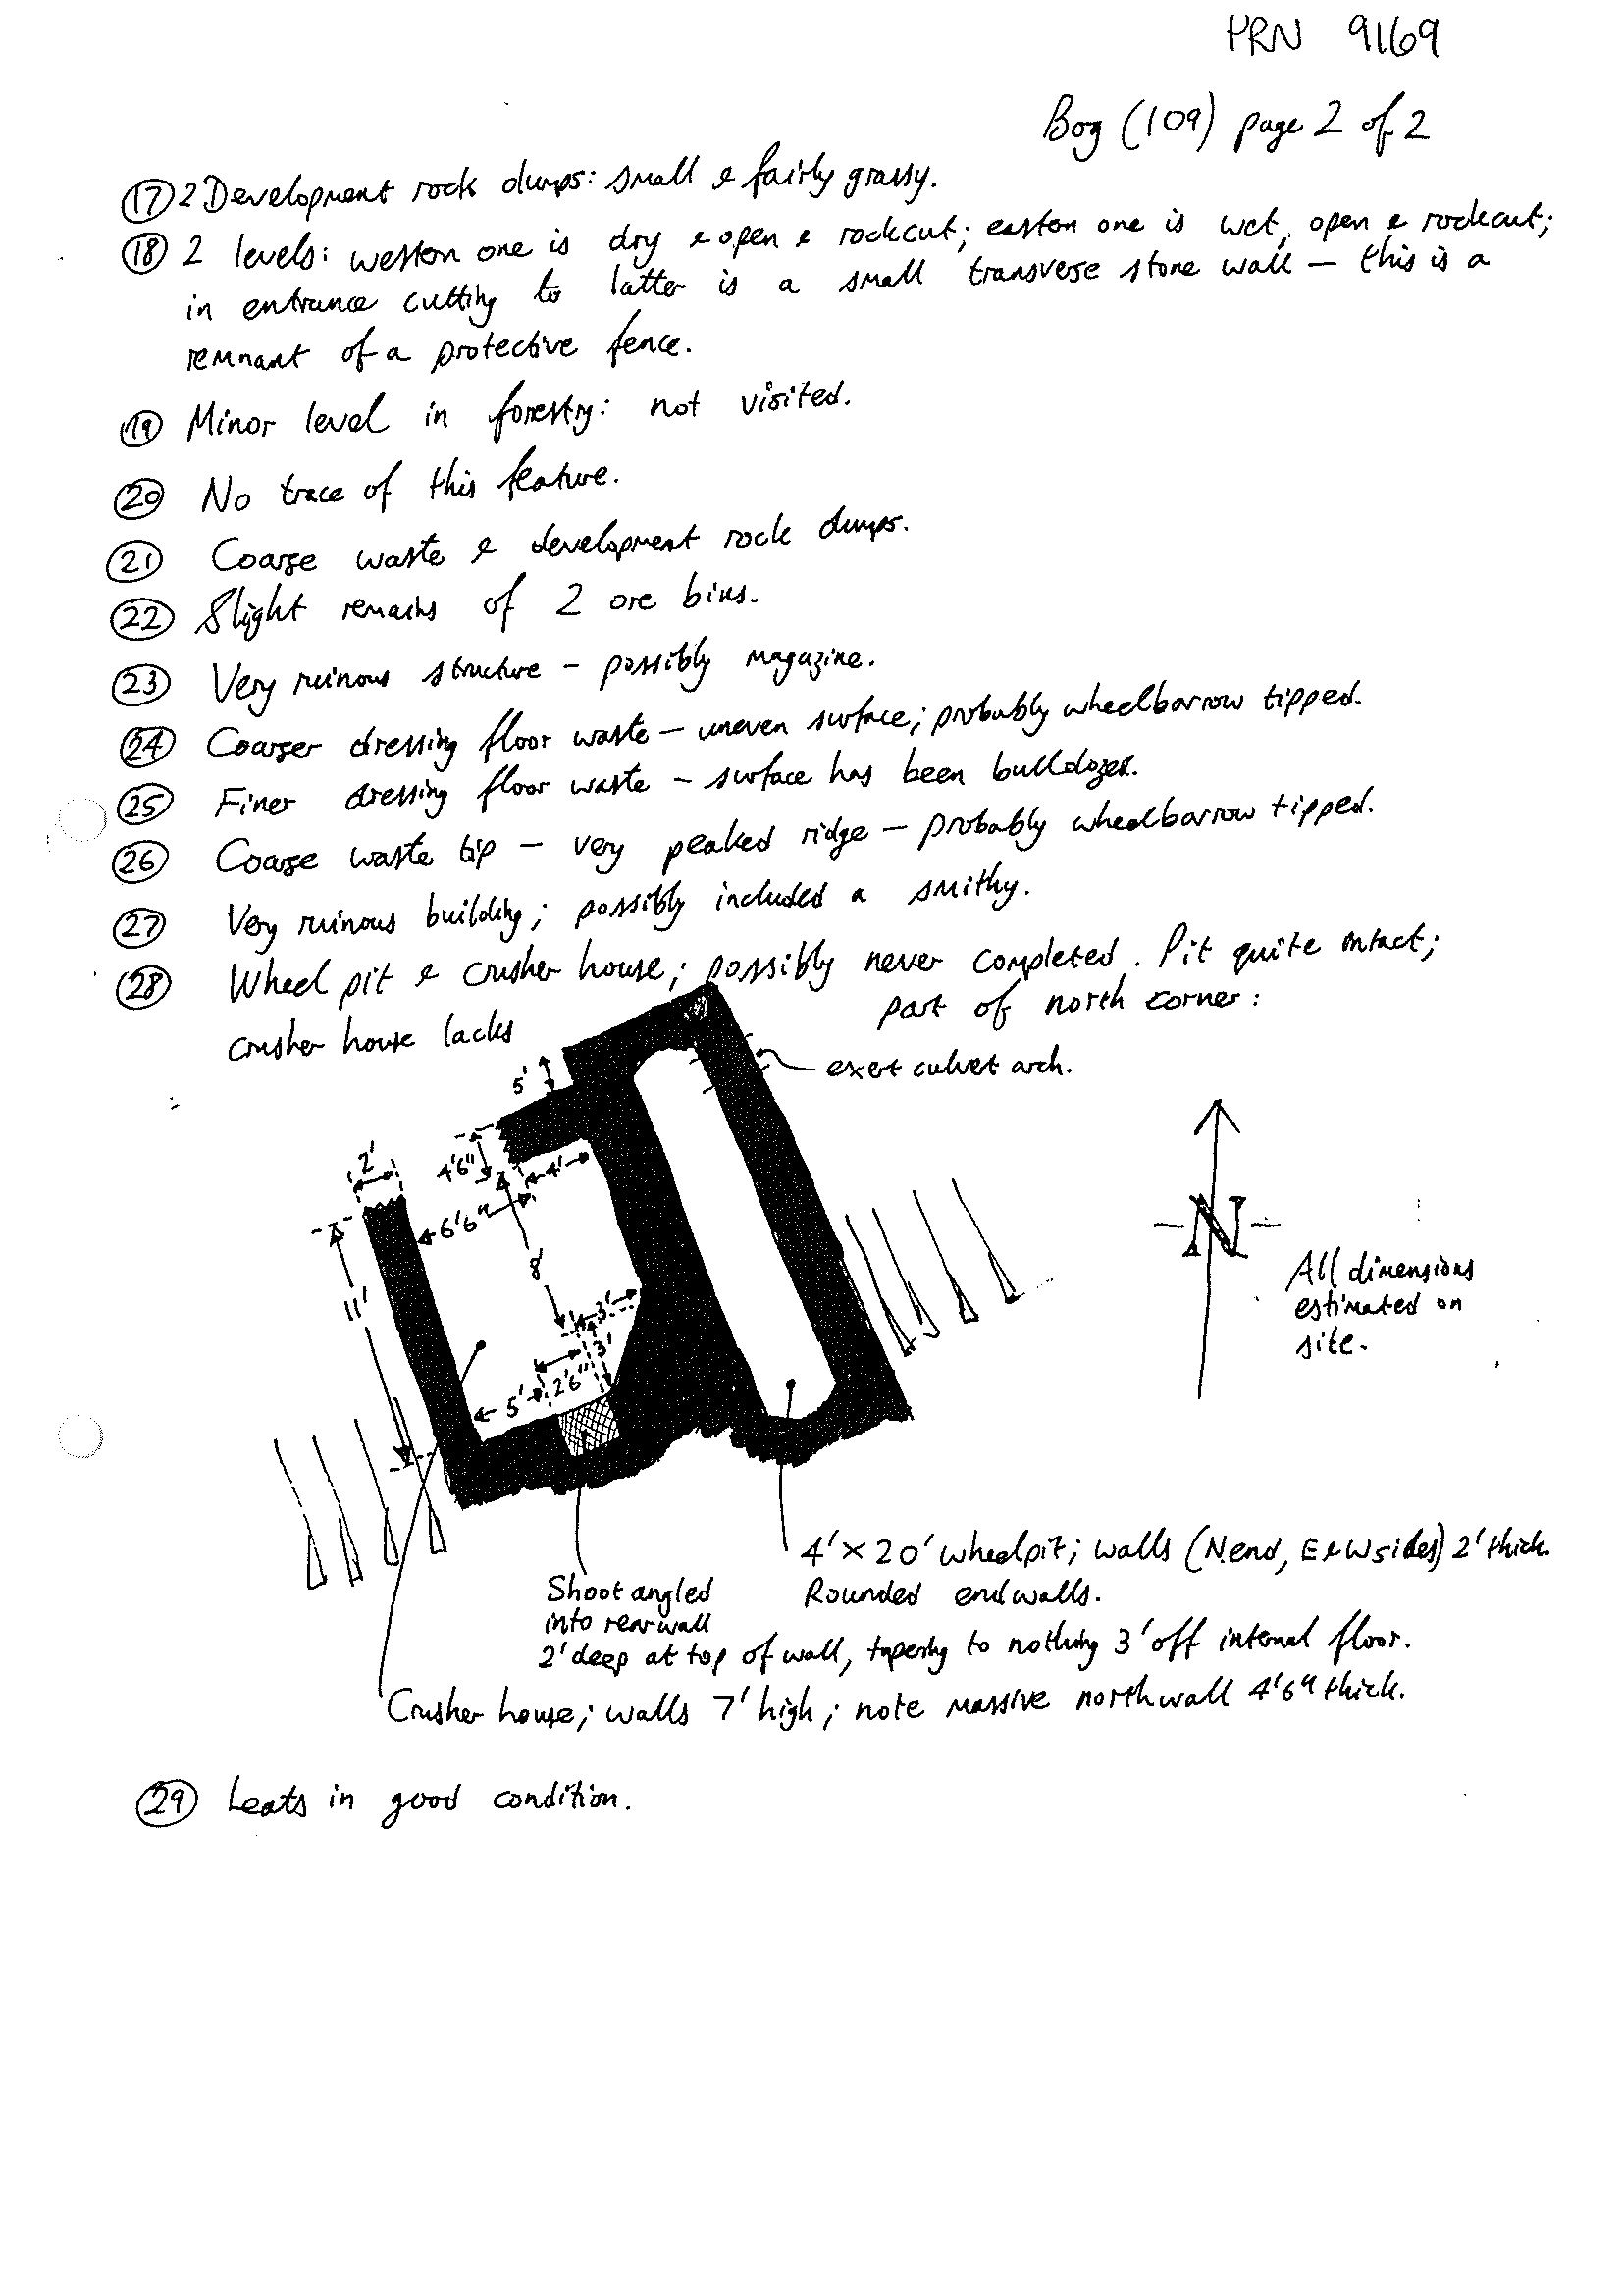 PRN 9169
Bog (109) page 2 of 2
17 2 Development rock dumps: small & fairly grassy.
18 2 levels: western one is dry & open & rockcut; eastern one is wet, open & rockcut;
in entrance cutting to latter is a small transverse stone wall – this is a
remnant of a protective fence.
19 Minor level in forestry: not visited.
20 No trace of this feature.
21 Coarse waste & development rock dumps.
22 Slight remains of 2 ore bins.
23 Very ruinous structure – possibly magazine.
24 Coarser dressing floor waste – uneven surface; probably wheelbarrow tipped.
25 Finer dressing floor waste – surface has been bulldozed.
26 Coarse waste tip – very peaked ridge – probably wheelbarrow tipped.
27 Very ruinous building; possibly included a smithy.
28 Wheel pit & crusher house; possibly never completed. Pit quite intact;
crusher house lacks part of north corner:
exert culvert arch.
5'
2'
4'6"
4'
6'6"
8'
11'
3'
3'
2'6"
5'
N
All dimensions
estimated on
site.
4' × 20' wheelpit; walls (N.end, E & W sides) 2' thick.
Rounded end walls.
Shoot angled
into rear wall
2' deep at top of wall, tapering to nothing 3' off internal floor.
Crusher house; walls 7' high; note massive north wall 4'6" thick.
29 Leats in good condition.